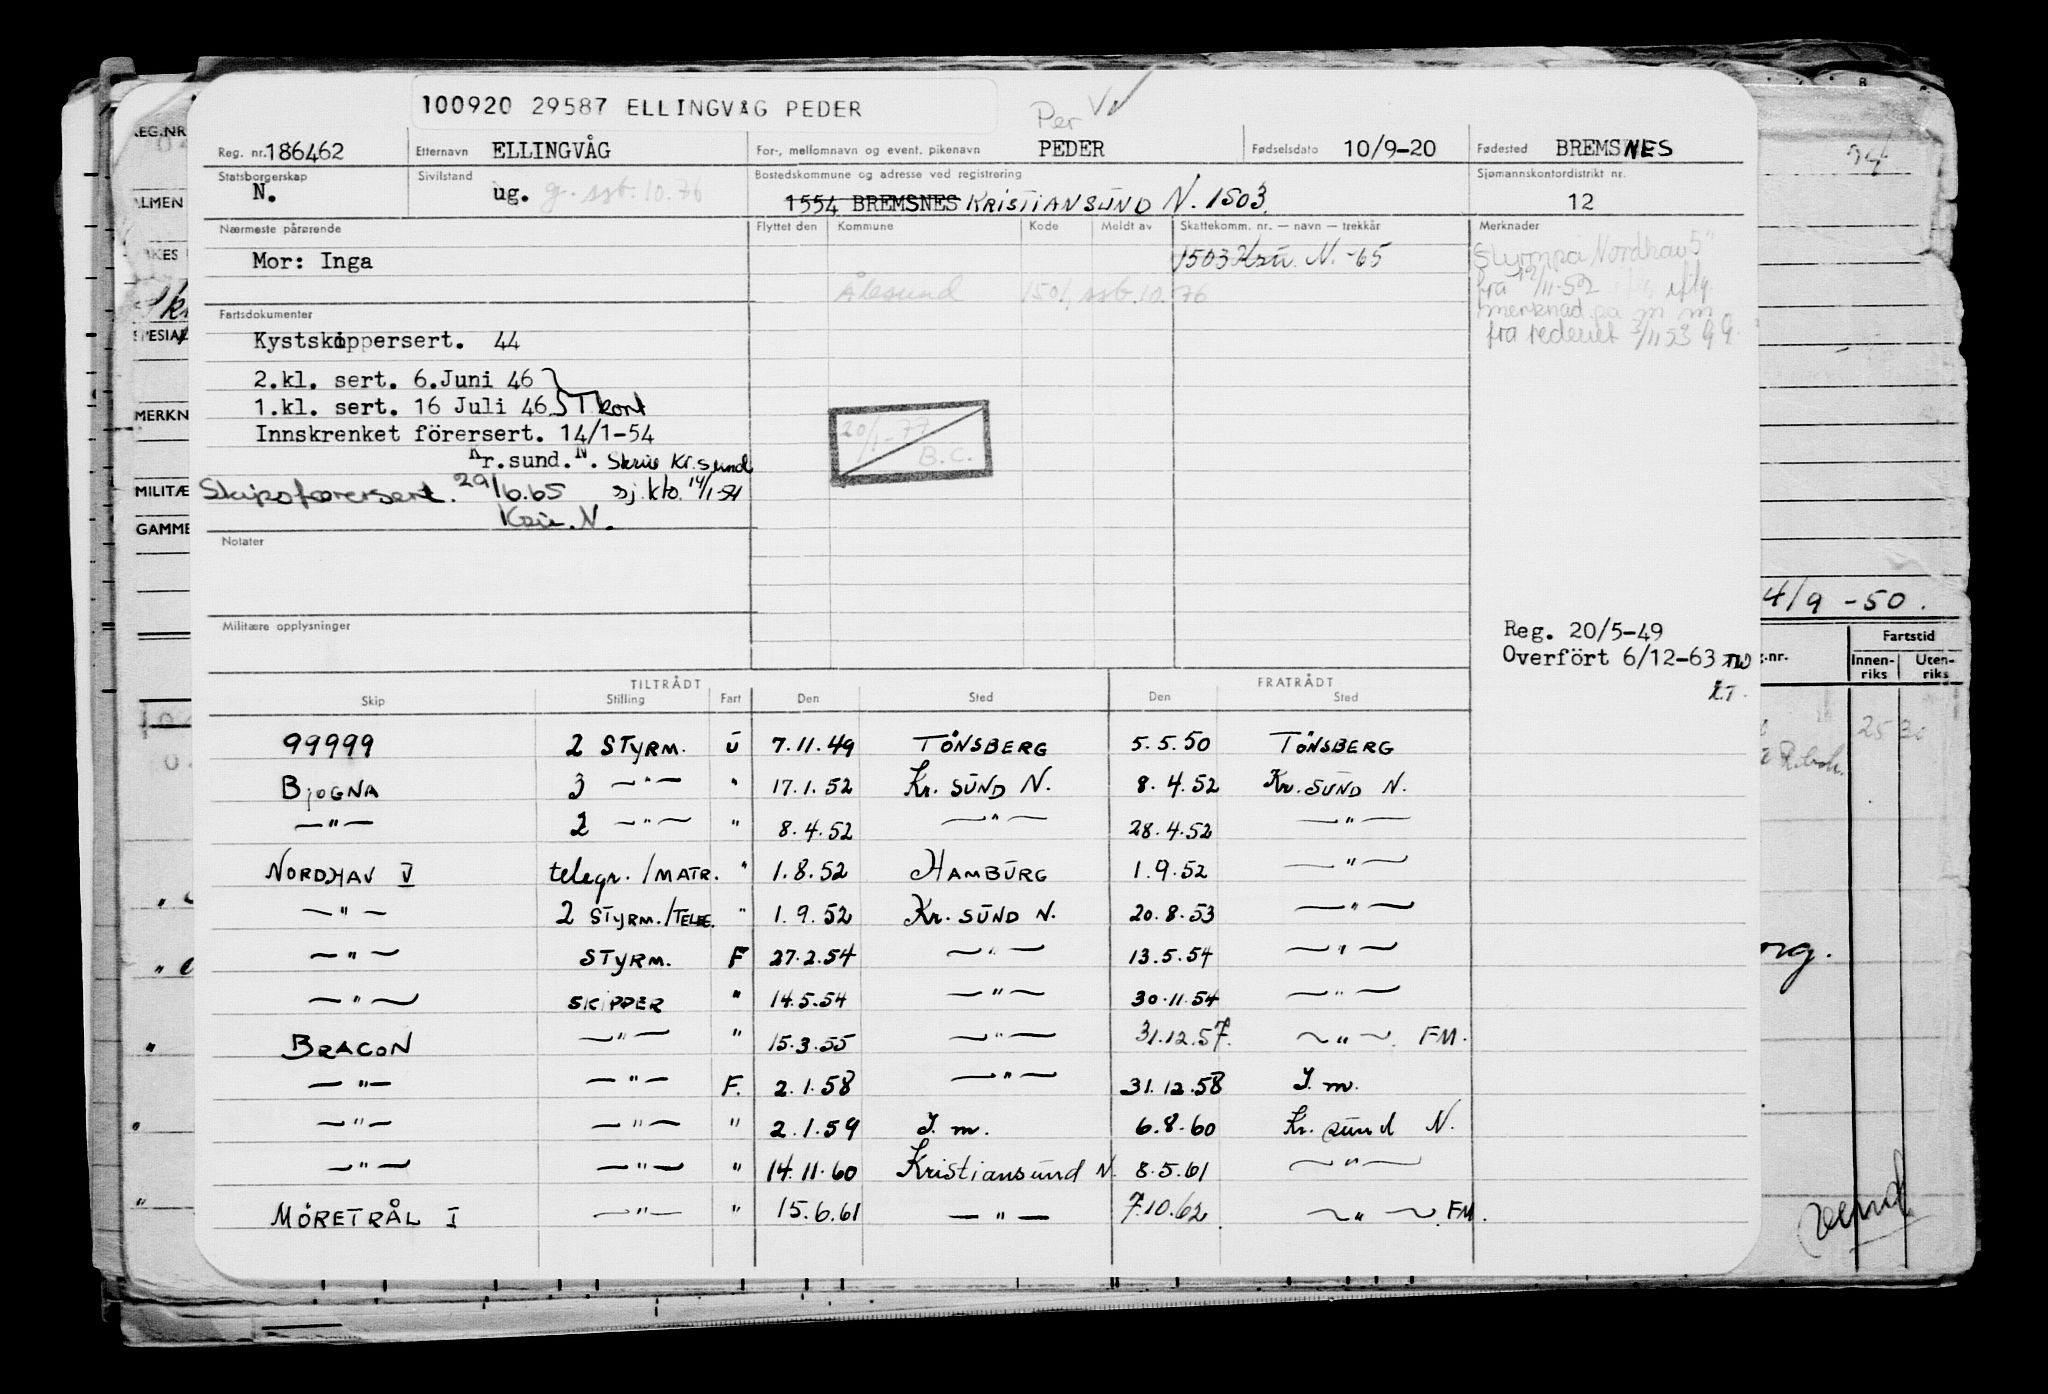 100920 29587 ELLINGVÅG PEDER
Per
Reg. nr. 186462 Etternavn ELLINGVÅG For-, mellomnavn og event. pikenavn PEDER Fødselsdato 10/9-20 Fødested BREMSNES
Statsborgerskap N. Sivilstand ug. g. ssb. 10.76 Bostedskommune og adresse ved registrering 1554 BREMSNES KRISTIANSUND N. 1503 Sjømannskontordistrikt nr. 12
Nærmeste pårørende Flyttet den Kommune Kode Meldt av Skattekomm. nr. — navn — trekkår Merknader
Mor: Inga 1503 Krsu. N. -65
Ålesund 1501, ssb. 10. 76
Styrm på Nordhav 5"
fra 12/11-52 iflg
merknad på m m
fra rederiet
Fartsdokumenter
Kystskippersert. 44
2.kl. sert. 6.Juni 46
1.kl. sert. 16 Juli 46 T kort
Innskrenket førersert. 14/1-54
Kr.sund. N. Skriv Kr.sund
Skipsførersert. 29/6.65 sj.kto. 14/1-54
Krsu. N.
20/1-77
B.C.
Notater
Militære opplysninger
Reg. 20/5-49
Overført 6/12-63 TW
K.T.
TILTRÅDT FRATRÅDT
Skip Stilling Fart Den Sted Den Sted
99999 2 STYRM. U 7.11.49 TÖNSBERG 5.5.50 TÖNSBERG
BJOGNA 3 —"— " 17.1.52 Kr. SUND N. 8.4.52 Kr. SUND N.
—"— 2 —"— " 8.4.52 —"— 28.4.52 —"—
NORDHAV V telegr./MATR. " 1.8.52 HAMBURG 1.9.52 —"—
—"— 2 STYRM./TELEG. " 1.9.52 Kr. SUND N. 20.8.53 —"—
—"— STYRM. F 27.2.54 —"— 13.5.54 —"—
—"— SKIPPER " 14.5.54 —"— 30.11.54 —"—
BRACON —"— " 15.3.55 —"— 31.12.57. —"— FM.
—"— —"— F. 2.1.58 —"— 31.12.58 J. m.
—"— —"— " 2.1.59 J. m. 6.8.60 Kr. sund N.
—"— —"— " 14.11.60 Kristiansund N. 8.5.61 —"—
MÖRETRÅL I —"— " 15.6.61 —"— 7.10.62 —"— FM.
REG.NR
ALMEN
MERKN
MILITÆ
GAMME
4/9 -50.
Fartstid
Innen-
riks
Uten-
riks
25 30
vend